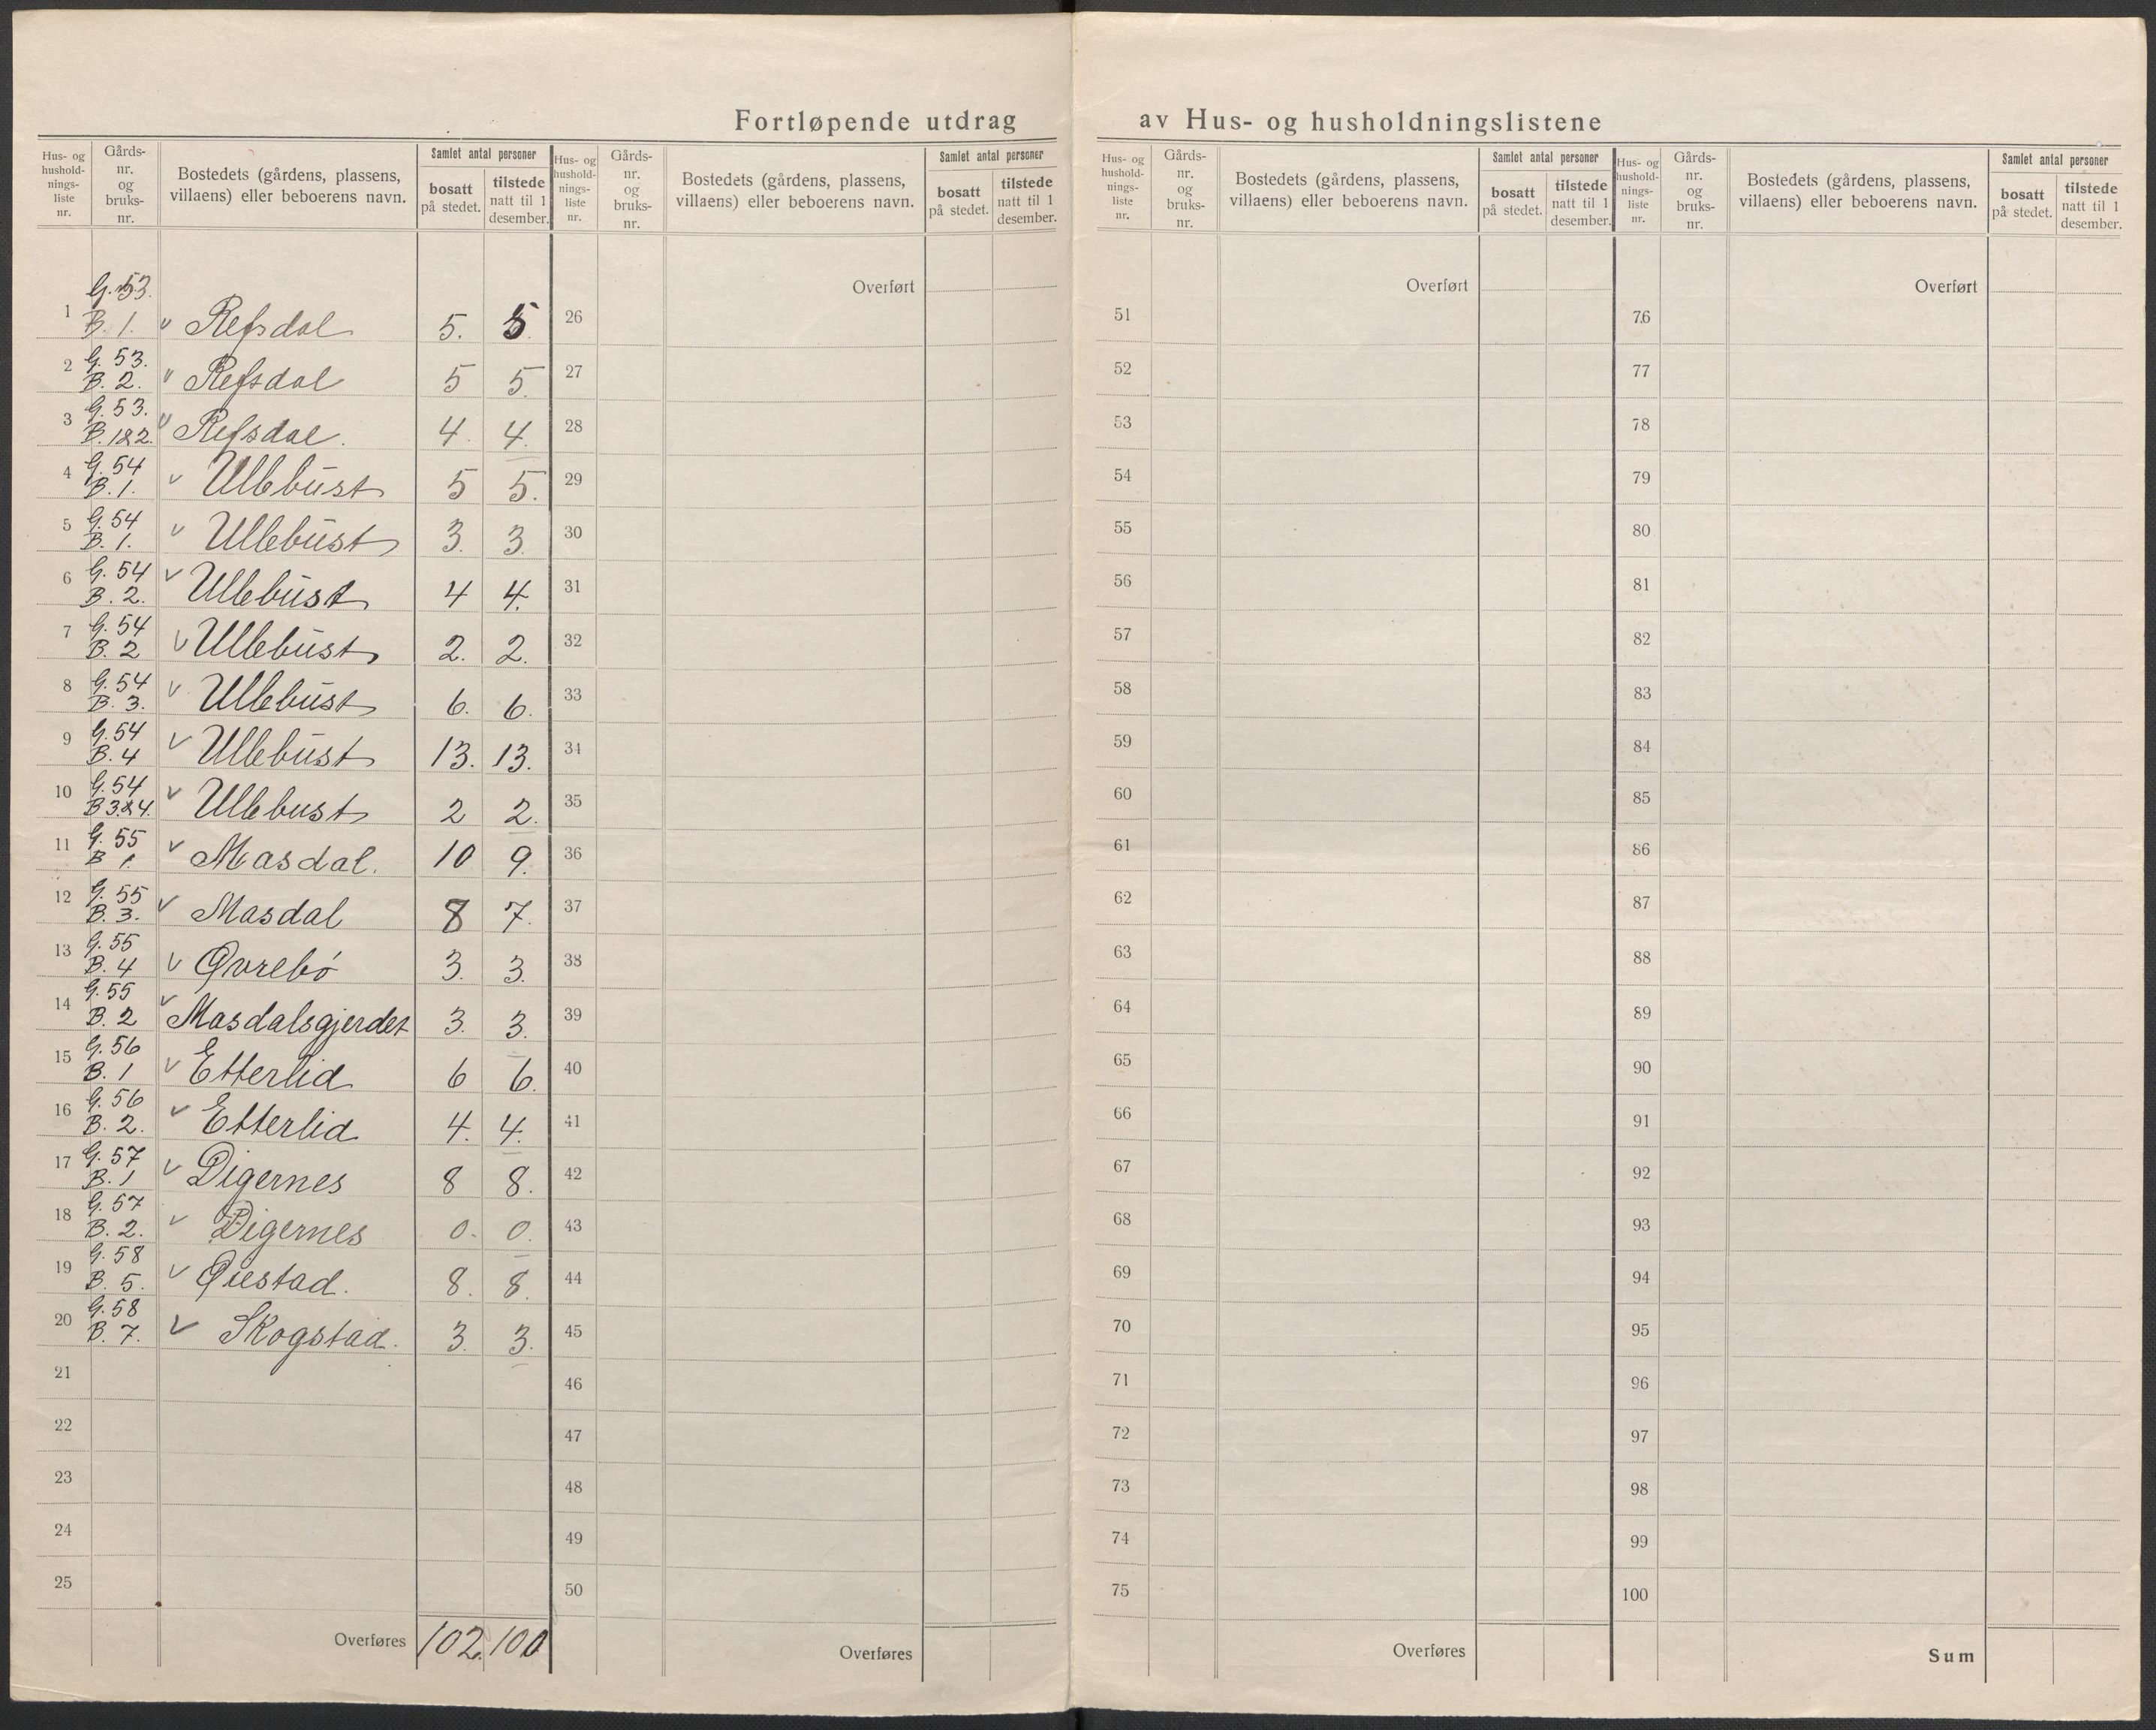 Fortløpende utdrag av Hus- og husholdningslistene
Hus- og husholdnings- liste nr. | Gårds- nr. og bruks- nr. | Bostedets (gårdens, plassens, villaens) eller beboerens navn. | Samlet antal personer | bosatt på stedet. | tilstede natt til 1 desember.
1 G. 53. B. 1. v Refsdal 5. 5
2 G. 53. B. 2. v Refsdal 5 5
3 G. 53. B. 1&2. v Refsdal. 4. 4.
4 G. 54 B. 1. v Ullebust 5 5.
5 G. 54 B. 1. v Ullebust 3. 3.
6 G. 54 B. 2. v Ullebust 4 4.
7 G. 54 B. 2 v Ullebust 2. 2.
8 G. 54 B. 3. v Ullebust 6. 6.
9 G. 54 B. 4 v Ullebust 13. 13.
10 G. 54 B 3&4. v Ullebust 2 2.
11 G. 55 B 1. v Masdal. 10 9.
12 G. 55 B. 3. v Masdal 8 7.
13 G. 55 B. 4 v Øvrebø 3. 3.
14 G. 55 B. 2 v Masdalsgjerdet 3. 3.
15 G. 56 B. 1 v Etterlid 6 6.
16 G. 56 B. 2. v Etterlid 4. 4.
17 G. 57 B. 1 v Digernes 8 8.
18 G. 57 B. 2. v Digernes 0. 0.
19 G. 58 B. 5. v Øiestad. 8. 8.
20 G. 58 B. 7. v Skogstad. 3. 3.
21
22
23
24
25
Overføres 102. 100
Hus- og husholdnings- liste nr. | Gårds- nr. og bruks- nr. | Bostedets (gårdens, plassens, villaens) eller beboerens navn. | Samlet antal personer | bosatt på stedet. | tilstede natt til 1 desember.
Overført
26
27
28
29
30
31
32
33
34
35
36
37
38
39
40
41
42
43
44
45
46
47
48
49
50
Overføres
Hus- og husholdnings- liste nr. | Gårds- nr. og bruks- nr. | Bostedets (gårdens, plassens, villaens) eller beboerens navn. | Samlet antal personer | bosatt på stedet. | tilstede natt til 1 desember.
Overført
51
52
53
54
55
56
57
58
59
60
61
62
63
64
65
66
67
68
69
70
71
72
73
74
75
Overføres
Hus- og husholdnings- liste nr. | Gårds- nr. og bruks- nr. | Bostedets (gårdens, plassens, villaens) eller beboerens navn. | Samlet antal personer | bosatt på stedet. | tilstede natt til 1 desember.
Overført
76
77
78
79
80
81
82
83
84
85
86
87
88
89
90
91
92
93
94
95
96
97
98
99
100
Sum